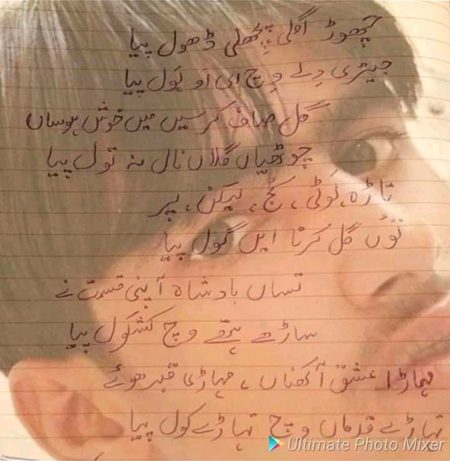 چھوڑ اگلی پچھلی ڈھول پیا
جیہڑی دلے وچ ای او بول پیا
گل صاف کرسیں میں خوش ہوساں
چوٹھیاں گلاں نال نہ تول پیا
کج، لیکن، پر
توں گل کرنا ایں گول پیا
تساں بادشاہ آپنی قسمت نے
ساڑھے ہتھے وچ کشکول پیا
مہاڑا عشق آکھناں، مہاڑی قبر ہوئے
تہاڑے قدماں وچ تہاڑے کول پیا
Ultimate Photo Mixer